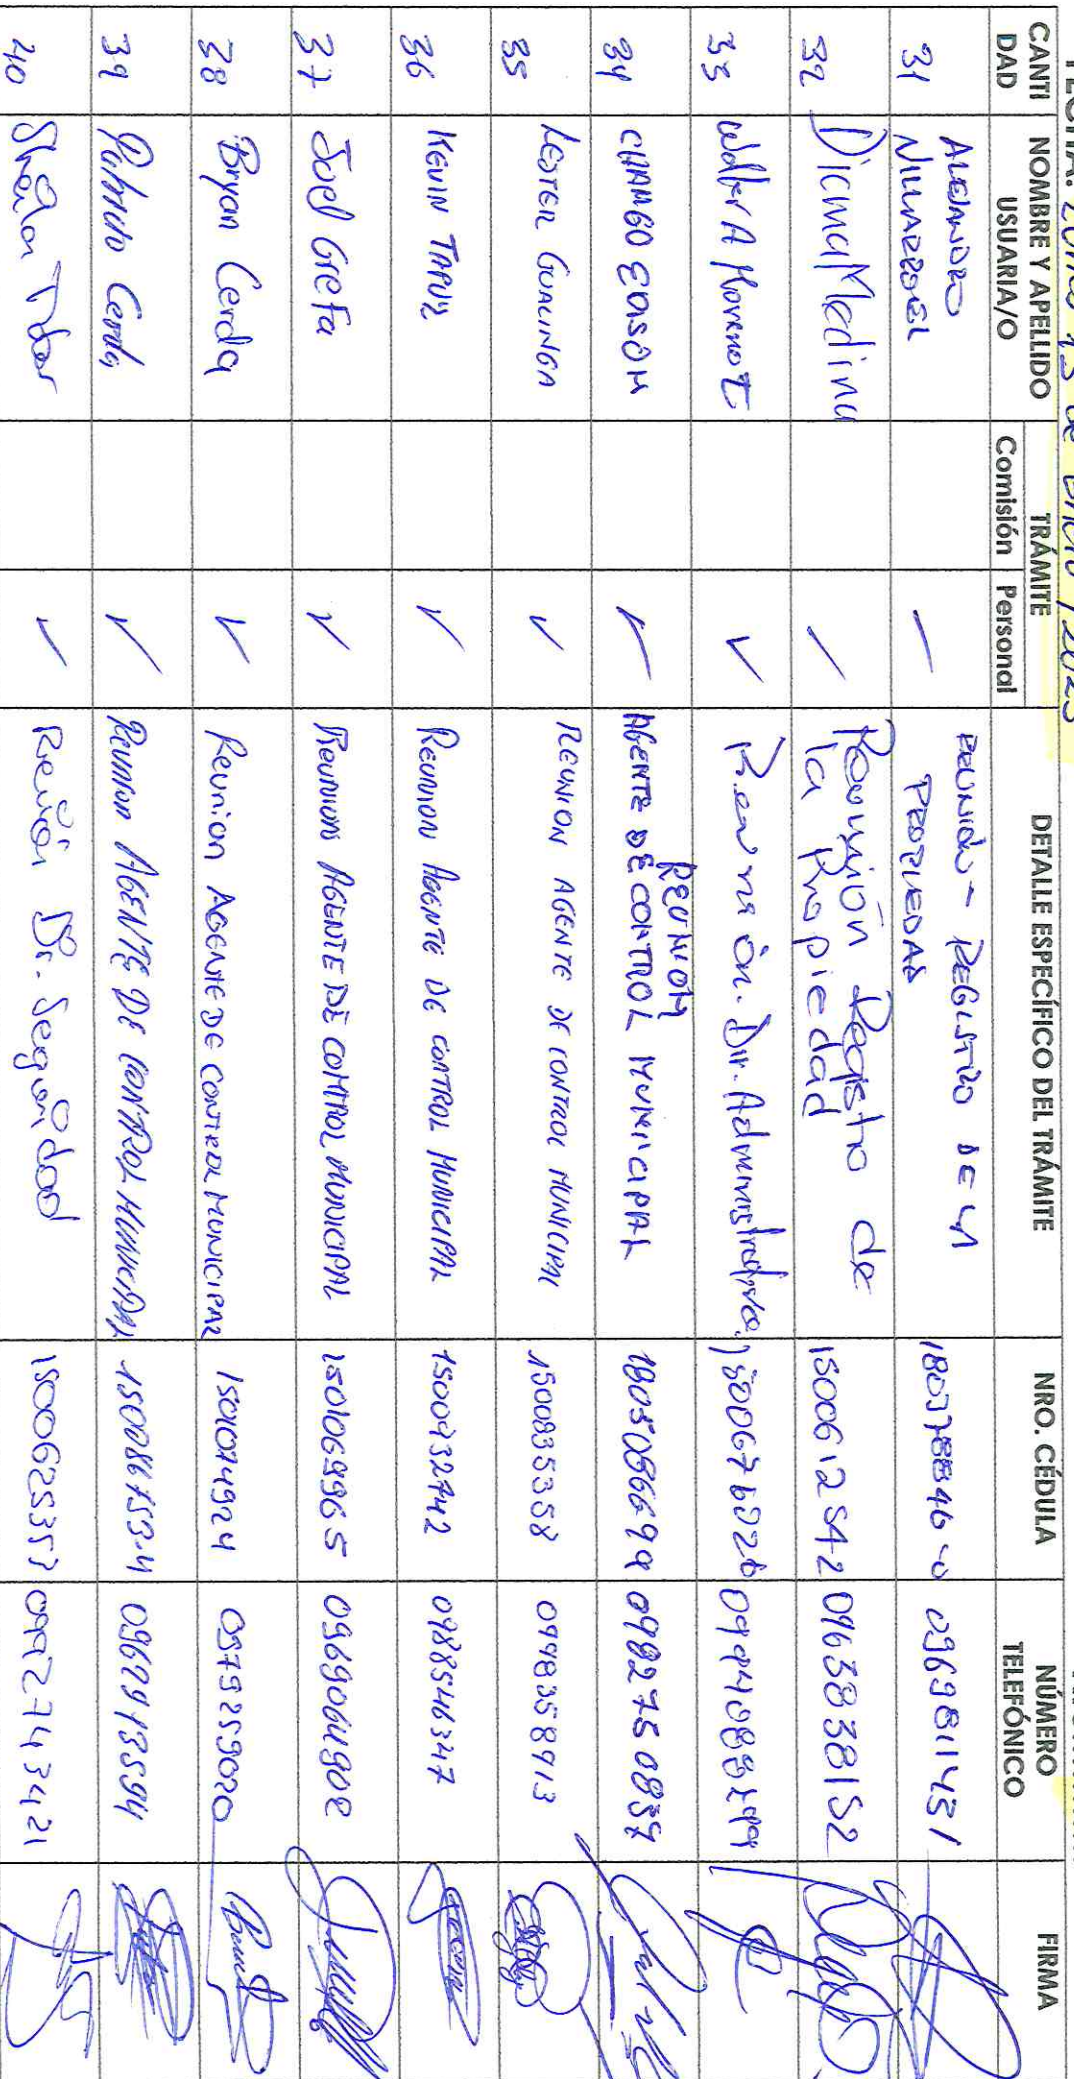 FECHA: Lunes 23 de Enero / 2023
CANTI
DAD
NOMBRE Y APELLIDO
USUARIA/O
TRÁMITE
Comisión
Personal
DETALLE ESPECÍFICO DEL TRÁMITE
NRO. CÉDULA
NÚMERO
TELEFÓNICO
FIRMA
31
ALEJANDRO
VILLARROEL
REUNIÓN - REGISTRO DE LA
PROPIEDAD
0969811451
32
Diana Medina
✓
Reunión Registro de
la Propiedad
1500612542
0963838152
33
Walter A Moreno T
✓
Reunión. Dir. Administrativa
34
CHANGO EDISON
✓
REUNION
AGENTE DE CONTROL MUNICIPAL
1805086699
0982750857
35
LESTER GUALINGA
✓
REUNION AGENTE DE CONTROL MUNICIPAL
1500835358
0998358913
36
KEVIN TAPUY
✓
REUNION AGENTE DE CONTROL MUNICIPAL
1500932742
0988546347
37
Joel Grefa
✓
REUNION AGENTE DE CONTROL MUNICIPAL
1501069965
0969064902
38
Bryan Cerda
✓
Reunion AGENTE DE CONTROL MUNICIPAL
1501074924
0979259020
39
Patricio Cerda
✓
Reunion AGENTE DE CONTROL MUNICIPAL
0962918594
40
✓
Reunión Dr. Seguridad
1500625357
0992743421